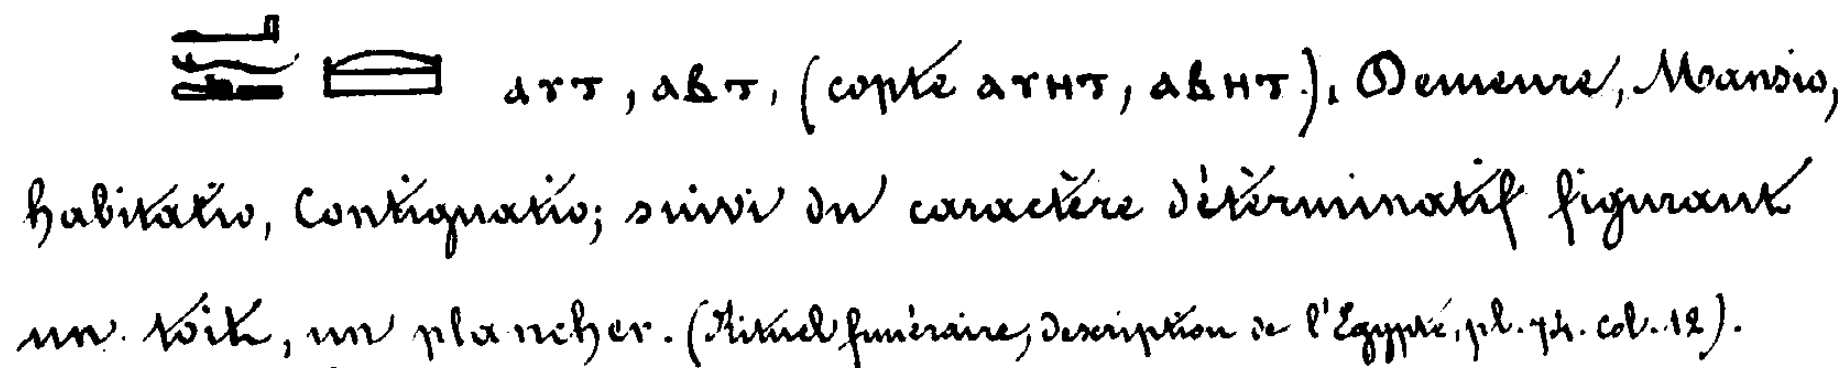 ⲁⲩⲧ, ⲁⲃⲧ, (copte ⲁⲩⲏⲧ, ⲁⲃⲏⲧ.), Demeure, Mansio,
habitatio, Contignatio; suivi du caractère déterminatif figurant
un toit, un plancher. (Rituel funéraire, description de l'Egypte, pl. 74. col. 12).